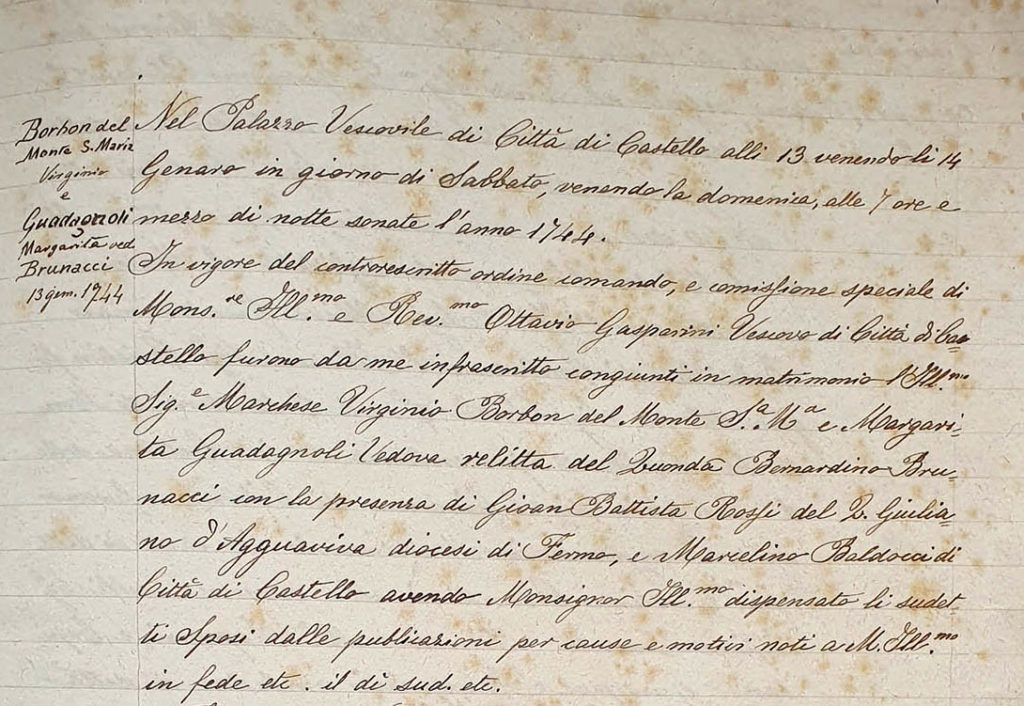 Borbon del
Monte S. Maria
Virginio
e
Guadagnoli
Margarita ved
Brunacci
13 gem. 1744
Nel Palazzo Vescovile di Città di Castello alli 13 venendo li 14
Genaro in giorno di Sabbato, venendo la domenica, alle 7 ore e
mezzo di notte sonate l'anno 1744.
In vigore del controrescritto ordine comando, e comissione speciale di
Mons.re Ill.mo e Rev.mo Ottavio Gasparini Vescovo di Città di Ca=
stello furono da me infrascritto congiunti in matrimonio l'Ill.mo
Sig.e Marchese Virginio Borbon del Monte S.a M.a e Margari=
ta Guadagnoli Vedova relitta del Quondã Bernardino Bru=
nacci con la presenza di Gioan Battista Rossi del Q. Giulia=
no d'Agguaviva diocesi di Fermo, e Marcelino Baldocci di
Città di Castello avendo Monsignor Ill.mo dispensato li sudet=
ti Sposi dalle publicazioni per cause e motivi noti a M. Ill.mo
in fede etc. il dì sud. etc.